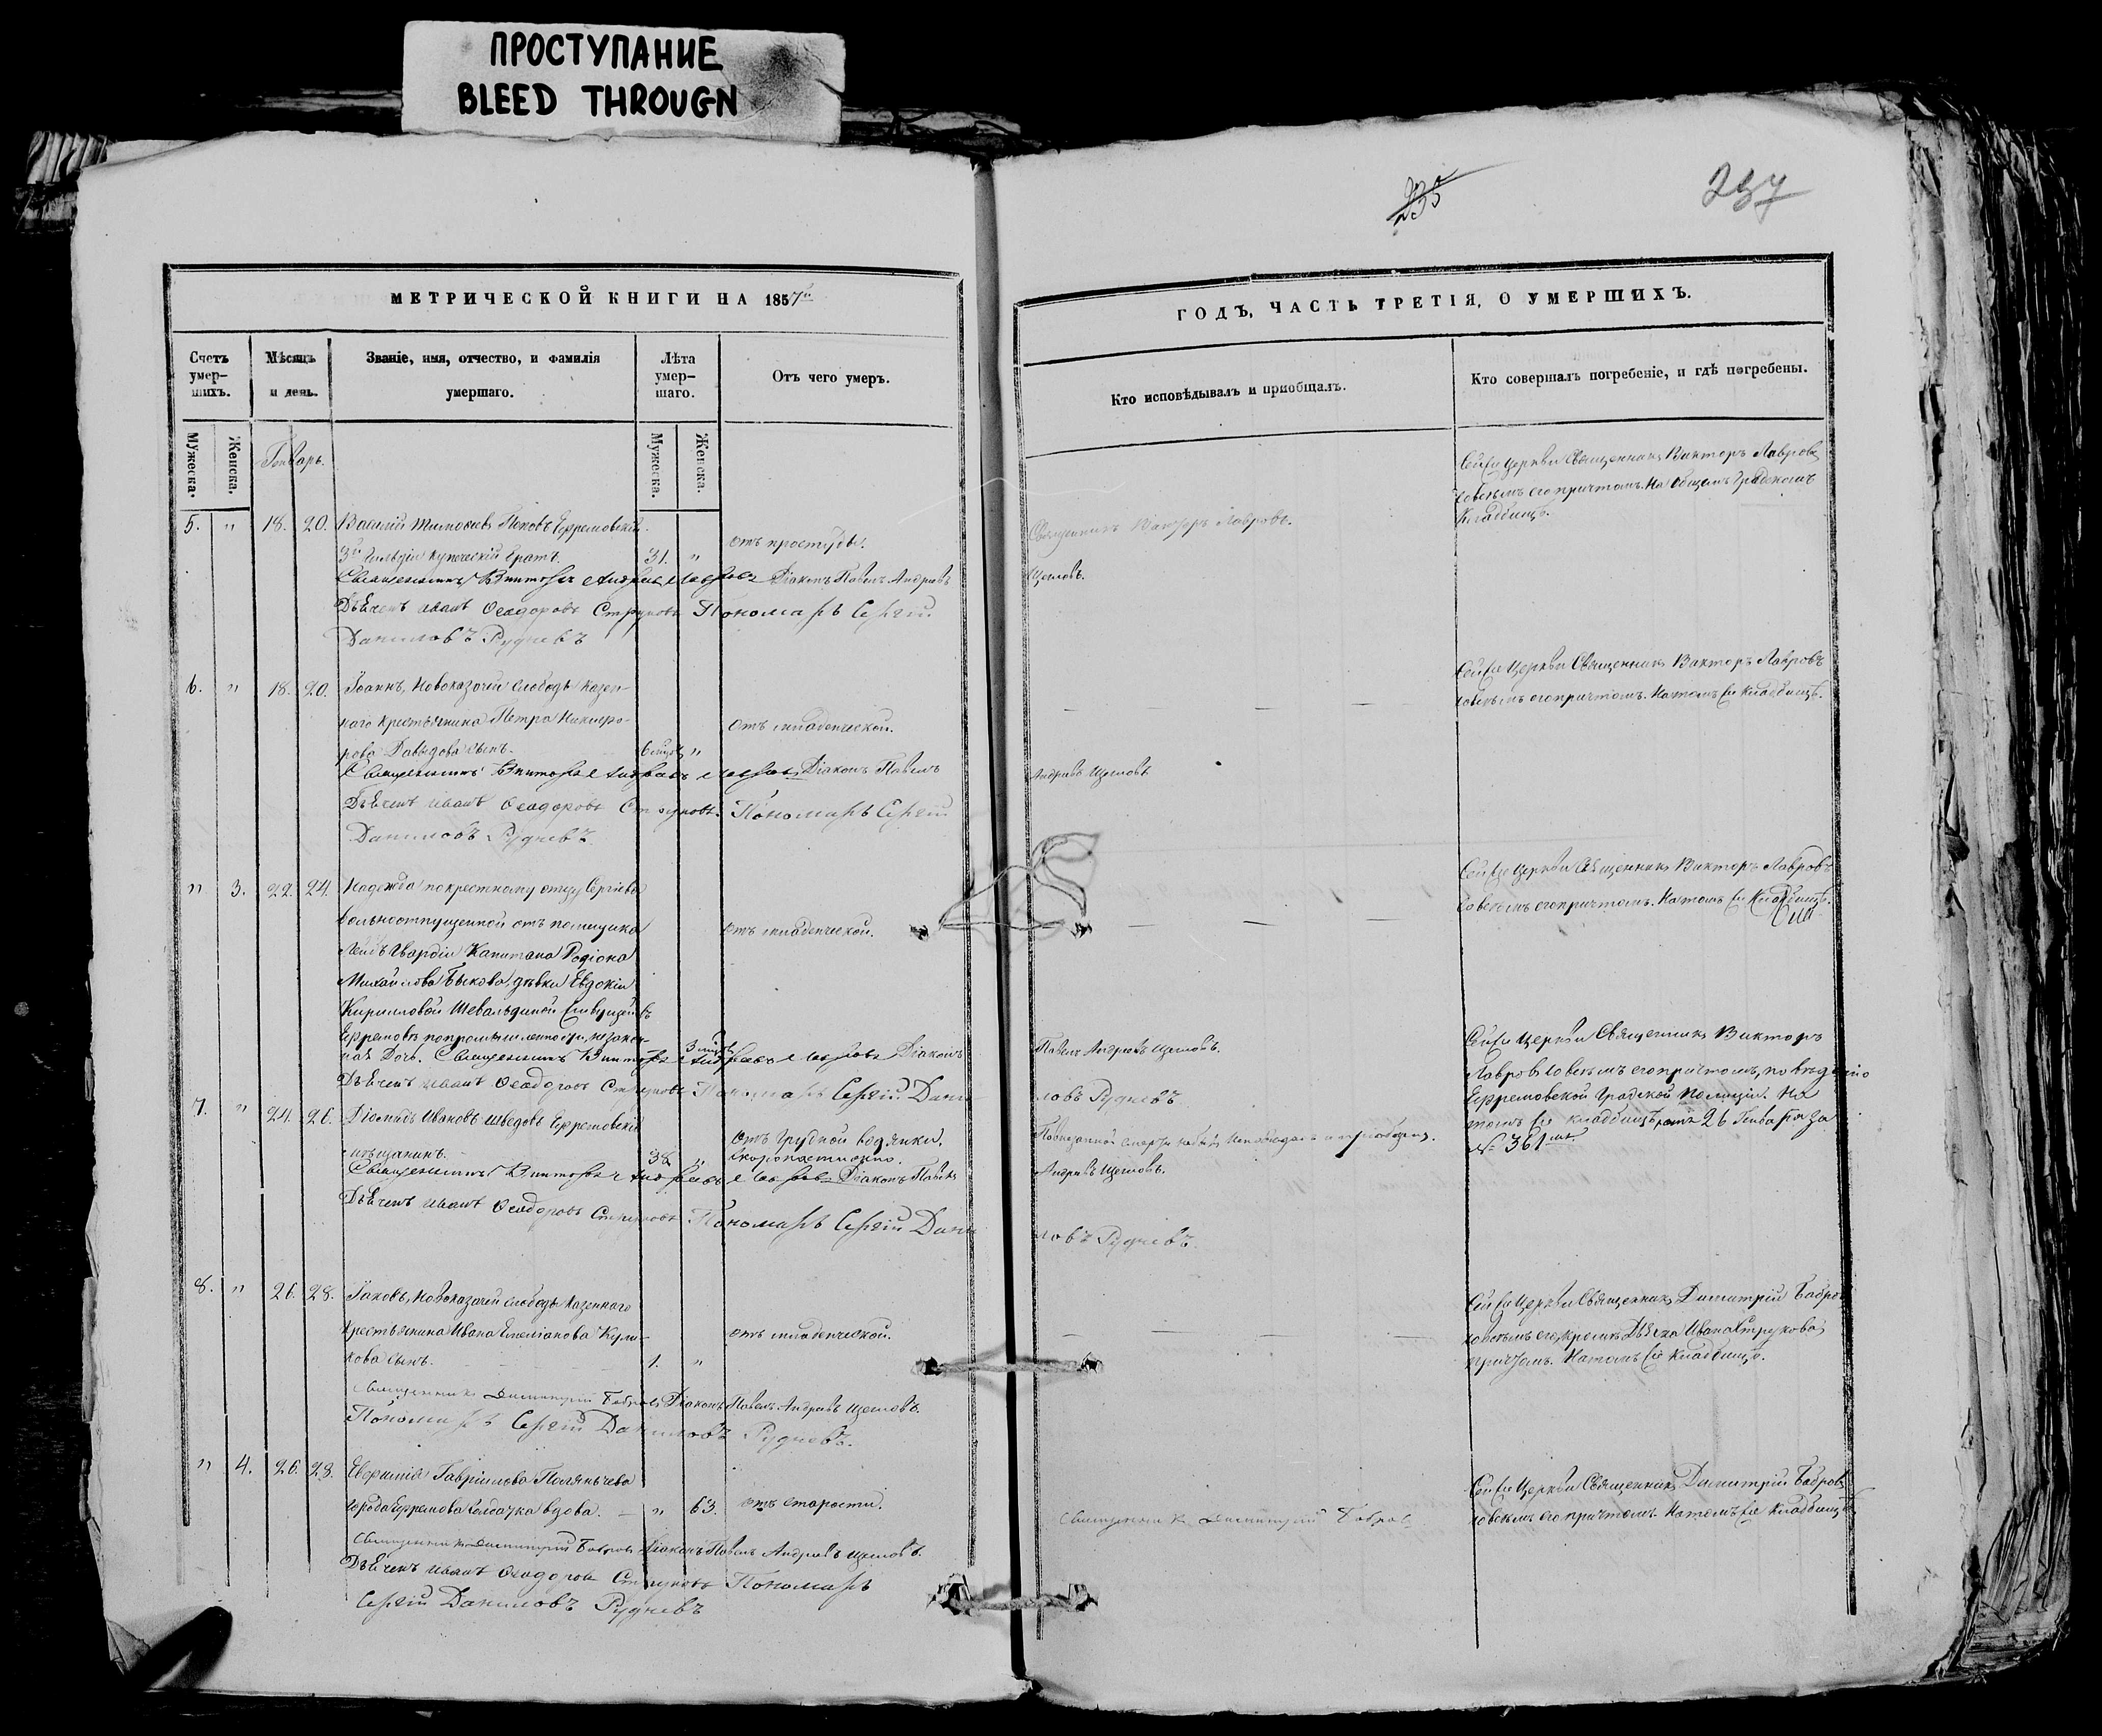 ПРОСТУПАНИЕ
BLEED THROUGN
235
237
МЕТРИЧЕСКОЙ КНИГИ НА 1857й
Счетъ умер-шихъ.
Мѣсяцъ и день.
Званіе, имя, отчество, и фамилія умершаго.
Лѣта умер-шаго.
Отъ чего умеръ.
Мужеска.
Женска.
Генварь.
Мужеска.
Женска.
5. " 18. 20. Василій Тимоѳеевъ Поповъ Ефремовскій
3й гильдіи купеческій братъ. 31. " отъ простуды.
Священникъ Викторъ Андреевъ Лавровъ Діаконъ Павелъ Андреевъ
Дьячекъ Иванъ Ѳеодоровъ Струковъ Пономарь Сергій
Даниловъ Рудневъ
6. " 18. 20. Іоаннъ, Новоказачей слободы казен-
наго крестьянина Петра Никифо- отъ младенческой.
рова Давыдова сынъ. 6 мцов "
Священникъ Викторъ Андреевъ Лавровъ Діаконъ Павелъ
Дьячекъ Иванъ Ѳеодоровъ Струковъ. Пономарь Сергій
Даниловъ Рудневъ
" 3. 22. 24. Надежда по крестному отцу Сергіева
вольноотпущенной отъ помещика отъ младенческой.
Лейбъ Гвардіи Капитана Родіона
Михайлова Быкова, девки Евдокіи
Кирилловой
Ефремовѣ по промышленности, незакон-
ная Дочь. 3 мцов Священникъ Викторъ Андреевъ Лавровъ Діаконъ
Дьячекъ Иванъ Ѳеодоровъ Струковъ Пономарь Сергій Дани
7. " 24. 26. Иванъ Шведовъ Ефремовскій
мѣщанинъ. 38. " отъ грудной водянки, скоропостижно.
Священникъ Викторъ Андреевъ Лавровъ Діаконъ Павелъ
Дьячекъ Иванъ Ѳеодоровъ Струковъ Пономарь Сергій Дани
8. " 26. 28. Іаковъ, Новоказачей слободы казеннаго
крестьянина Ивана Емеліанова Кули- отъ младенческой.
кова сынъ. 1. "
Священникъ Димитрій Бобровъ Діаконъ Павелъ Андреевъ Щегловъ.
Пономарь Сергій Даниловъ Рудневъ.
" 4. 26. 28. Гавріилова
города Ефремова Солдатка вдова. " 63. отъ старости.
Священникъ Димитрій Бобровъ Діаконъ Павелъ Андреевъ Щегловъ.
Дьячекъ Иванъ Ѳеодоровъ Струковъ Пономарь
Сергій Даниловъ Рудневъ
ГОДЪ, ЧАСТЬ ТРЕТІЯ, О УМЕРШИХЪ.
Кто исповѣдывалъ и пріобщалъ.
Кто совершалъ погребеніе, и гдѣ погребены.
Сей же Церкви Священникъ Викторъ Лавровъ
со всемъ его причтомъ. На общемъ Градскомъ
Кладбищѣ.
Священникъ Викторъ Лавровъ.
Щегловъ.
Сей же Церкви Священникъ Викторъ Лавровъ
со всемъ его причтомъ. На томъ же кладбищѣ.
Андреевъ Щегловъ
Сей же Церкви Священникъ Викторъ Лавровъ
со всемъ его причтомъ. На томъ же Кладбищѣ.
Павелъ Андреевъ Щегловъ.
ловъ Рудневъ
Сей же Церкви Священникъ Викторъ
Лавровъ со всемъ его причтомъ, по
Ефремовской Градской Полиціи. На
томъ же кладбищѣ, отъ 26 Генваря за
№ 361мъ.
Андреевъ Щегловъ.
ловъ Рудневъ.
Сей же Церкви Священникъ Димитрій Бобровъ
со всемъ его, кромѣ Дьячка Ивана Струкова,
причтомъ. На томъ же Кладбищѣ.
Сей же Церкви Священникъ Димитрій Бобровъ
со всемъ его причтомъ. На томъ же Кладбищѣ.
Священникъ Димитрій Бобровъ